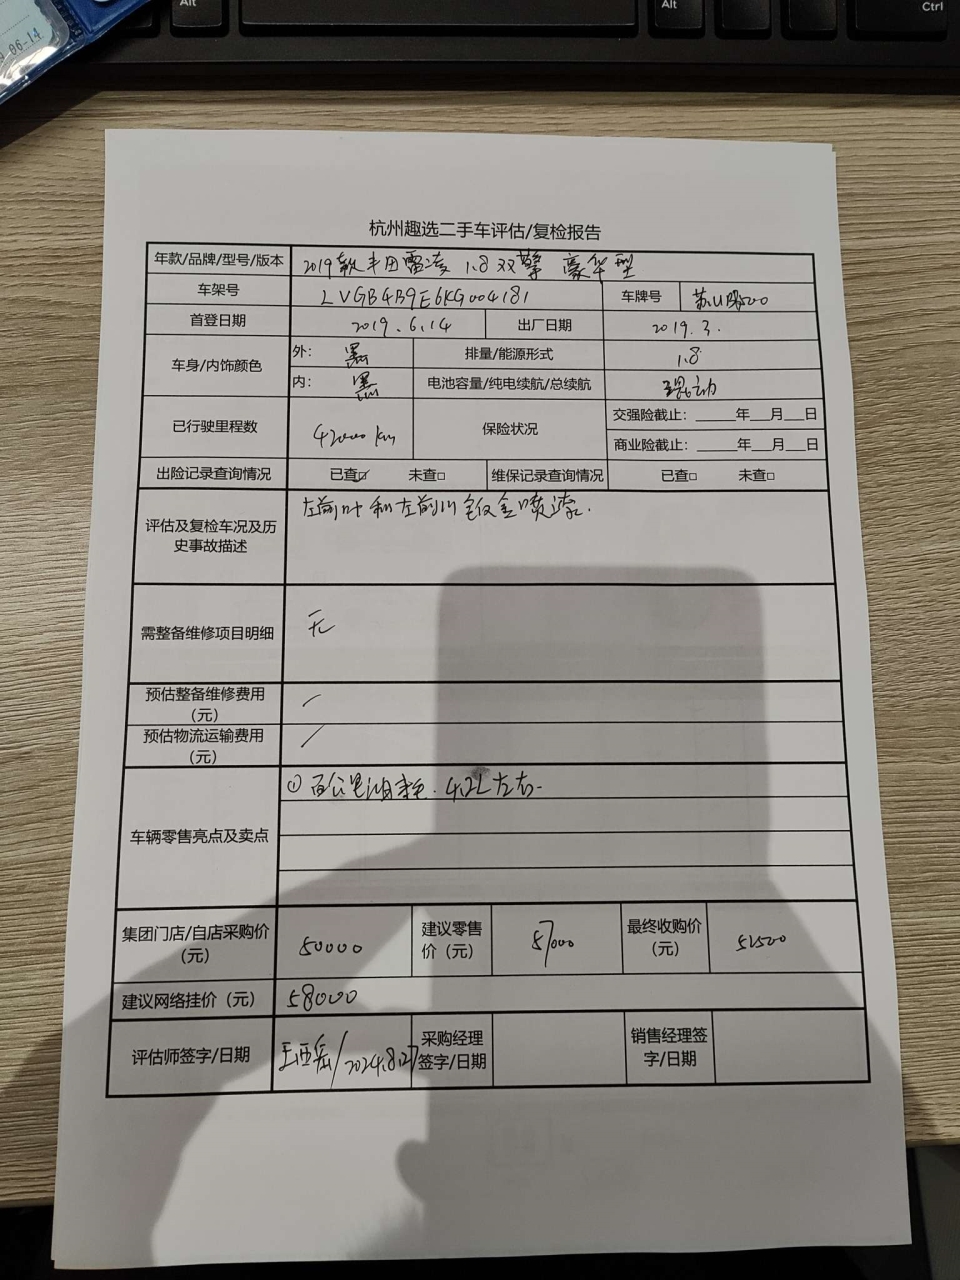 Alt
Alt
Ctrl
06-14
杭州趣选二手车评估/复检报告
年款/品牌/型号/版本 2019款丰田雷凌 1.8双擎 豪华型
车架号 LVGB4B9E6KG004181 车牌号 苏U
首登日期 2019.6.14 出厂日期 2019.3.
车身/内饰颜色 外: 黑 排量/能源形式 1.8
内: 黑 电池容量/纯电续航/总续航 混动
已行驶里程数 42000 km 保险状况 交强险截止: ____年__月__日
商业险截止: ____年__月__日
出险记录查询情况 已查☑ 未查□ 维保记录查询情况 已查□ 未查□
评估及复检车况及历史事故描述 左前叶和左前门钣金喷漆.
需整备维修项目明细 无
预估整备维修费用(元) /
预估物流运输费用(元) /
车辆零售亮点及卖点 ① 百公里油耗. 4.2L左右.
集团门店/自店采购价(元) 50000 建议零售价(元) 57000 最终收购价(元) 52500
建议网络挂价(元) 58000
评估师签字/日期 /2024.8.27 采购经理签字/日期 销售经理签字/日期